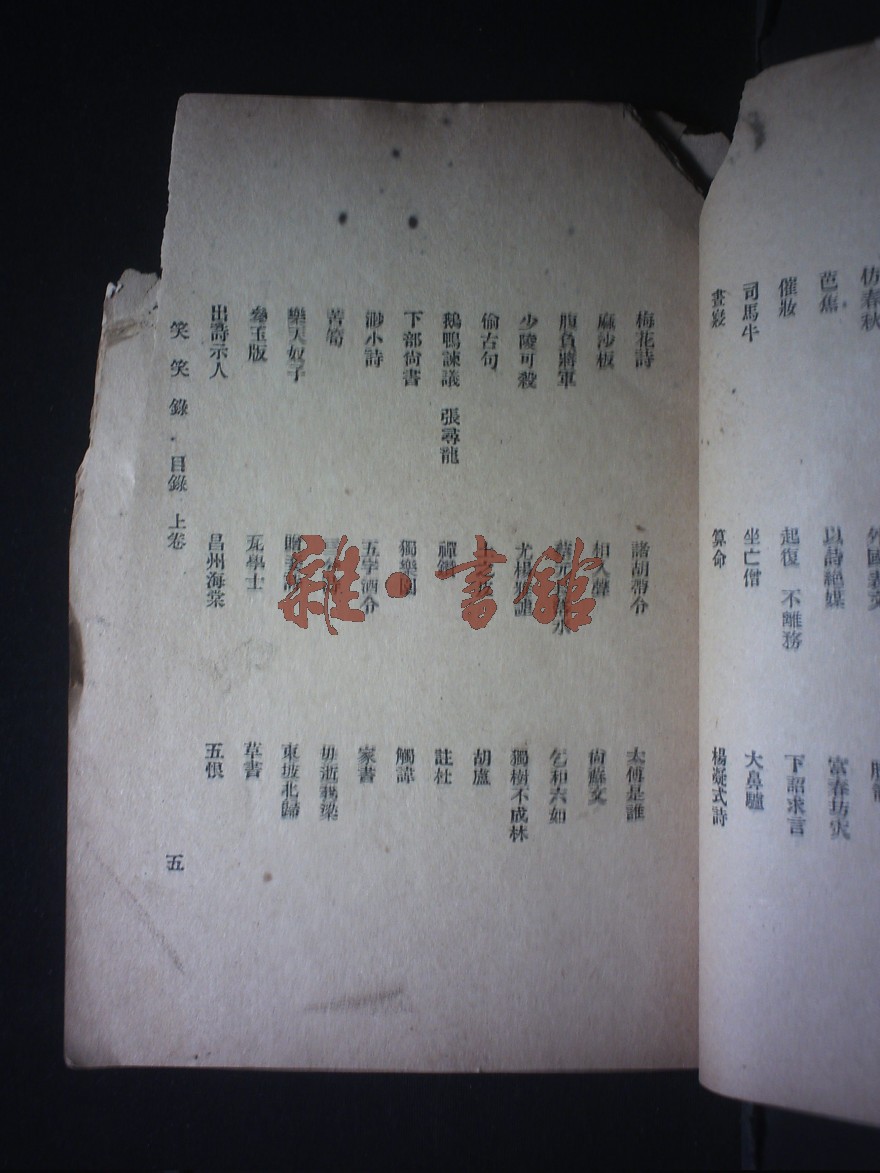 春秋
芭蕉
以詩絕媒
富春坊
催妝
起復 不離務
下詔求言
司馬牛
坐亡僧
大鼻驢
算命
楊凝式詩
梅花詩
諸胡帶令
太傅是誰
麻沙板
相人
尙蘇文
腹負將軍
乞和六如
少陵可殺
尤楊雅謔
獨樹不成林
偷古句
胡盧
鵝鴨諫議 張尋龍
註杜
下部尙書
獨樂園
觸諱
渺小詩
五字酒令
家書
苦筍
毋逝我梁
樂天奴子
東坡北歸
參玉版
瓦學士
草書
出詩示人
昌州海棠
五恨
笑笑錄 目錄 上卷
五
雜·書館